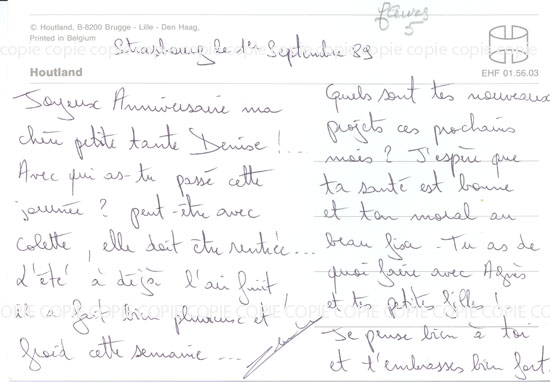 © Houtland, B-8200 Brugge - Lille - Den Haag,
Printed in Belgium
fleurs
5
Strasbourg le 1er Septembre 89
Houtland
EHF 01.56.03
COPIE COPIE COPIE COPIE COPIE COPIE
Joyeux Anniversaire ma
chère petite tante Denise !...
Avec qui as-tu passé cette
journée ? peut-être avec
Colette, elle doit être rentrée...
L'été à déjà l'air fini
il a fait bien pluvieux et
froid cette semaine ...
Quels sont tes nouveaux
projets ces prochains
mois ? J'espère que
ta santé est bonne
et ton moral au
beau fixe. Tu as de
quoi faire avec Agnès
et tes petites filles !
Je pense bien à toi
et t'embrasses bien fort.
COPIE COPIE COPIE COPIE COPIE COPIE